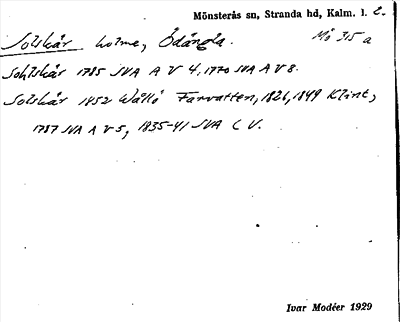 Mönsterås sn, Stranda hd, Kalm. l. E.
Solskär holme, Ödängla. Mö 315 a
Sohlskär 1785 SVA A V 4, 1770 SVA A V 8.
Solskär 1852 Wållö Farvatten, 1826, 1849 Klint,
1787 SVA A V 5, 1835-41 SVA C V.
Ivar Modéer 1929